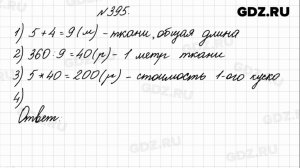 GDZ.RU
№395.
1) 5 + 4 = 9 (м) - ткани, общая длина
2) 360 : 9 = 40 (р) - 1 метр ткани
3) 5 * 40 = 200 (р) - стоимость 1-ого куска
4)
Ответ: